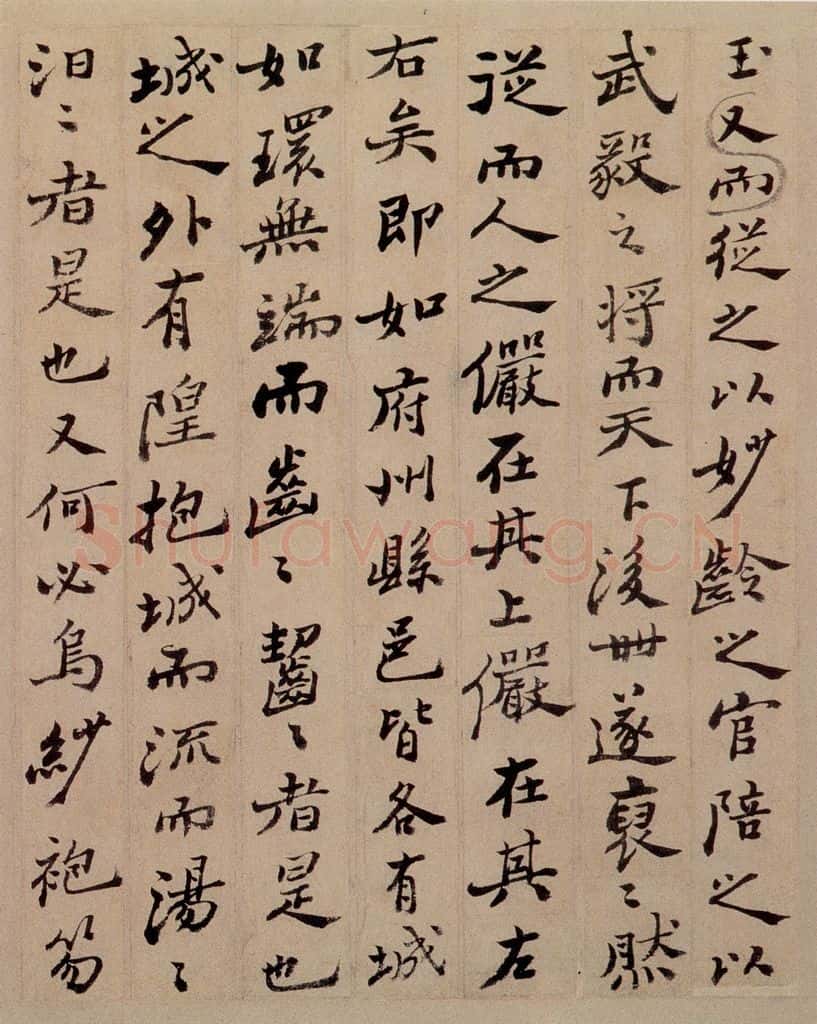 玉又而從之以妙齡之官陪之以
武毅之将而天下後世遂裒〻然
從而人之儼在其上儼在其左
右矣即如府州縣邑皆各有城
如環無端而齒〻齧〻者是也
城之外有隍抱城而流而湯〻
汩〻者是也又何必烏紗袍笏
Shufawang.CN